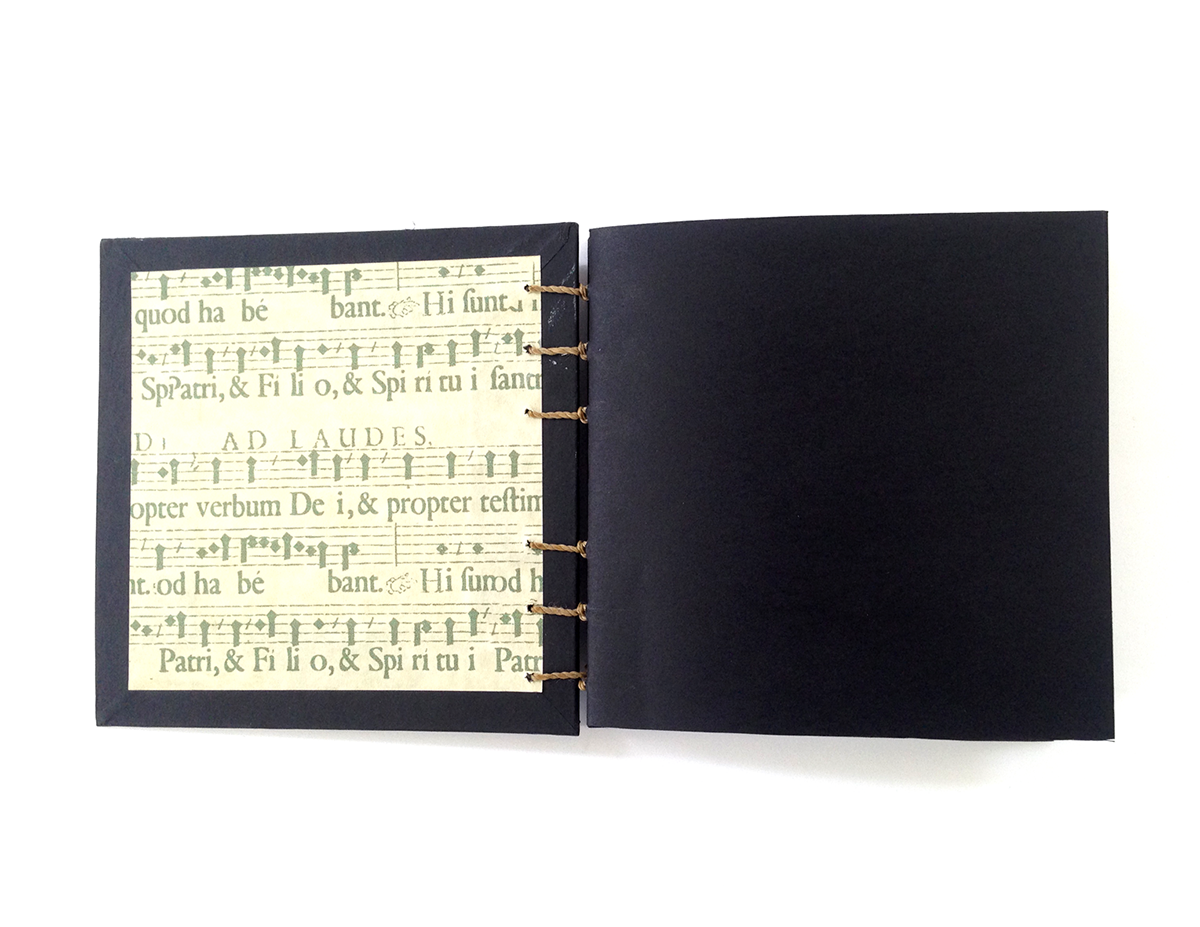 quod ha bé bant. Hi ſunt
SpPatri, & Fi li o, & Spi ri tu i ſanct
AD LAUDES.
opter verbum De i, & propter teſtim
nt. od ha bé bant. Hi ſunod h
Patri, & Fi li o, & Spi ri tu i Patr